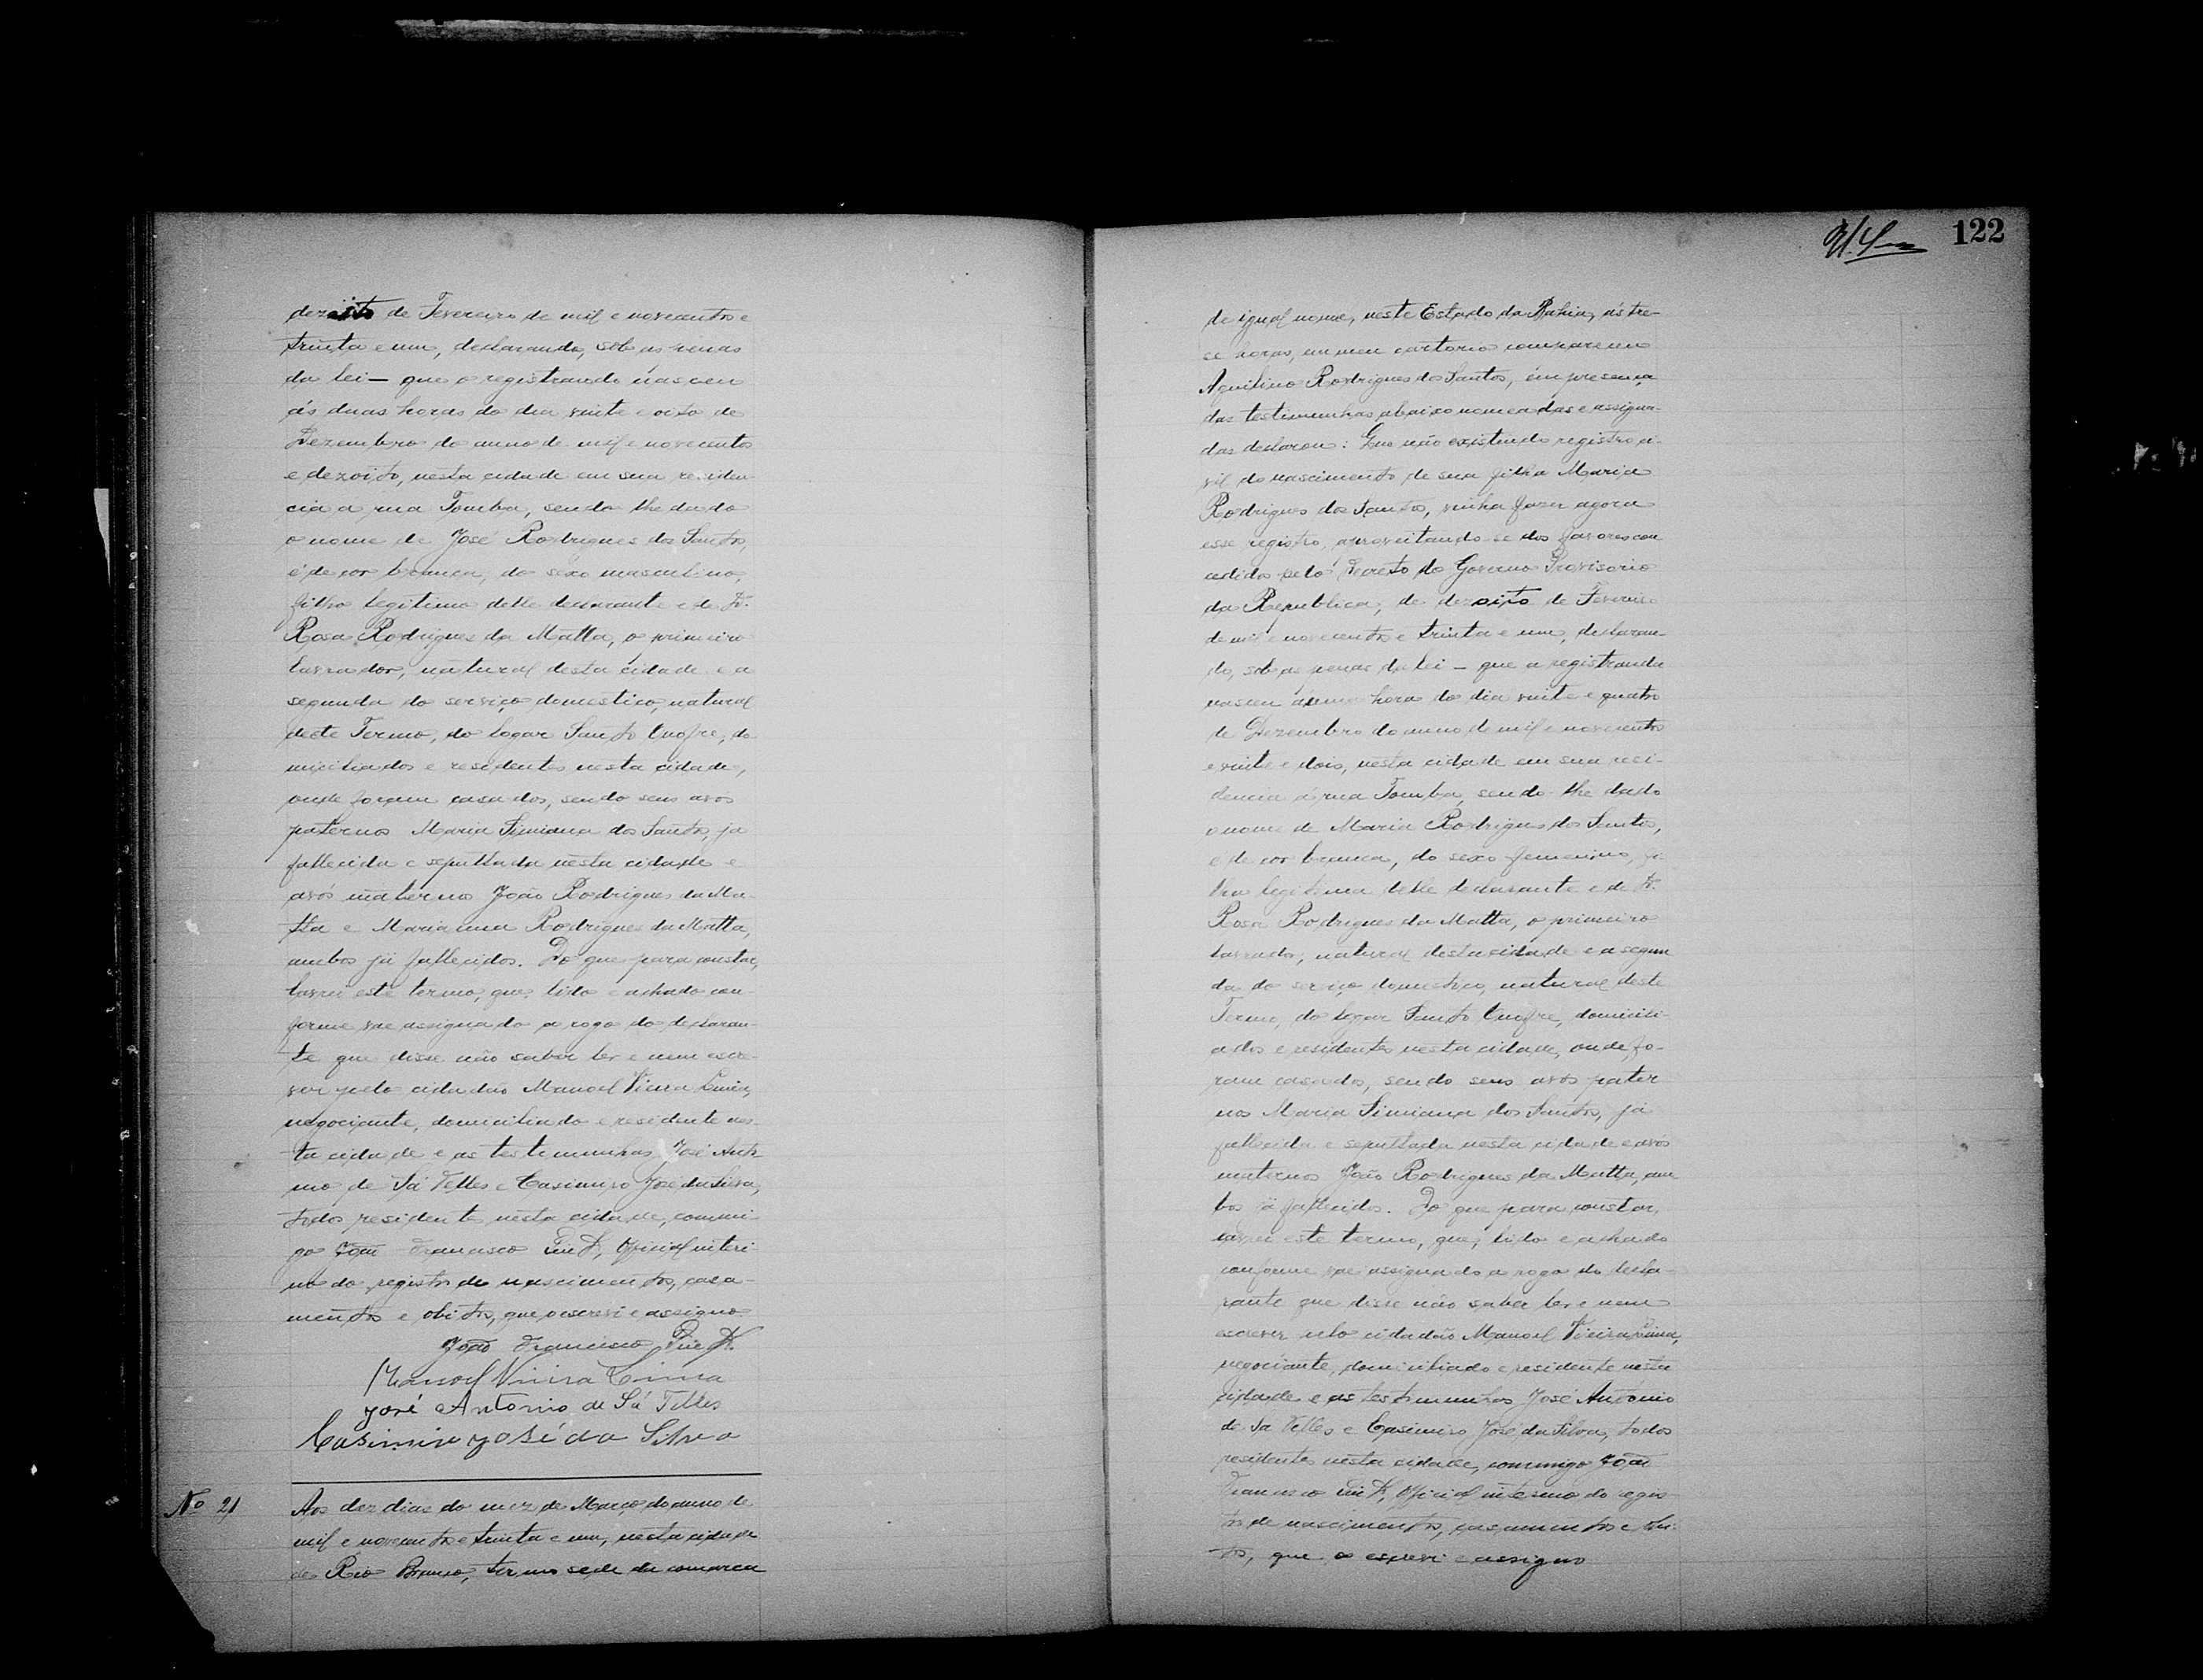 dezoito de Fevereiro de mil e novecentos e
trinta e um, declarando, sob as penas
da lei — que o registrando nasceu
ás duas horas do dia vinte e oito de
Dezembro do anno de mil e novecentos
e dezoito, nesta cidade em sua residen-
cia a rua Tomba, sendo lhe dado
o nome de José Rodrigues dos Santos,
é de cor branca, do sexo masculino,
filho legitimo delle declarante e de D.
Rosa Rodrigues da Matta, o primeiro
lavrador, natural desta cidade e a
segunda do serviço domestico, natural
deste Termo, do logar Santo Onofre, do-
miciliados e residentes nesta cidade,
onde foram casados, sendo seus avós
paternos Maria Simiana dos Santos, já
fallecida e sepultada nesta cidade e
avós maternos João Rodrigues da Ma-
tta e Marianna Rodrigues da Matta,
ambos já fallecidos. Do que para constar,
lavrei este termo, que, lido e achado con-
forme vae assignado a rogo do declaran-
te que disse não saber ler e nem escre-
ver pelo cidadão Manoel Vieira Lima,
negociante, domiciliado e residente nes-
ta cidade e as testemunhas José Anto-
nio de Sá Telles e Casimiro José da Silva,
todos residentes nesta cidade, commi-
go João Francisco, Official interi-
no do registro de nascimentos, casa-
mentos e obitos, que o escrevi e assigno
João Francisco
Manoel Vieira Lima
José Antonio de Sá Telles
Casimiro José da Silva
No 21
Aos dez dias do mez de Março do anno de
mil e novecentos e trinta e um, nesta cidade
de Rio Branco, termo sede da comarca
122
de igual nome, neste Estado da Bahia, ás tre-
se horas, em meu cartorio compareceu
Aquilino Rodrigues dos Santos, em presença
das testemunhas abaixo nomeadas e assigna-
das declarou: Que não existindo registro ci-
vil do nascimento de sua filha Maria
Rodrigues dos Santos, vinha fazer agora
esse registro, aproveitando-se dos favores con-
cedidos pelo Decreto do Governo Provisorio
da Republica, de dezoito de Fevereiro
de mil e novecentos e trinta e um, declaran-
do, sob as penas da lei — que a registranda
nasceu á uma hora do dia vinte e quatro
de Dezembro do anno de mil e novecentos
e vinte e dois, nesta cidade em sua resi-
dencia á rua Tomba, sendo-lhe dado
o nome de Maria Rodrigues dos Santos,
é de cor branca, do sexo femenino, fi-
lha legitima delle declarante e de D.
Rosa Rodrigues da Matta, o primeiro
lavrador, natural desta cidade e a segun
da do serviço domestico, natural deste
Termo, do logar Santo Onofre, domicili-
ados e residentes nesta cidade, onde fo-
ram casados, sendo seus avós pater
nos Maria Simiana dos Santos, já
fallecida e sepultada nesta cidade e avós
maternos João Rodrigues da Matta, am
bos já fallecidos. Do que para constar,
lavrei este termo, que, lido e achado
conforme vae assignado a rogo do decla-
rante que disse não saber ler e nem
escrever pelo cidadão Manoel Vieira Lima,
negociante, domiciliado e residente nesta
cidade e as testemunhas José Antonio
de Sá Telles e Casimiro José da Silva, todos
residentes nesta cidade, commigo João
Francisco, Official interino do regis
tro de nascimentos, casamentos e obi-
tos, que o escrevi e assigno